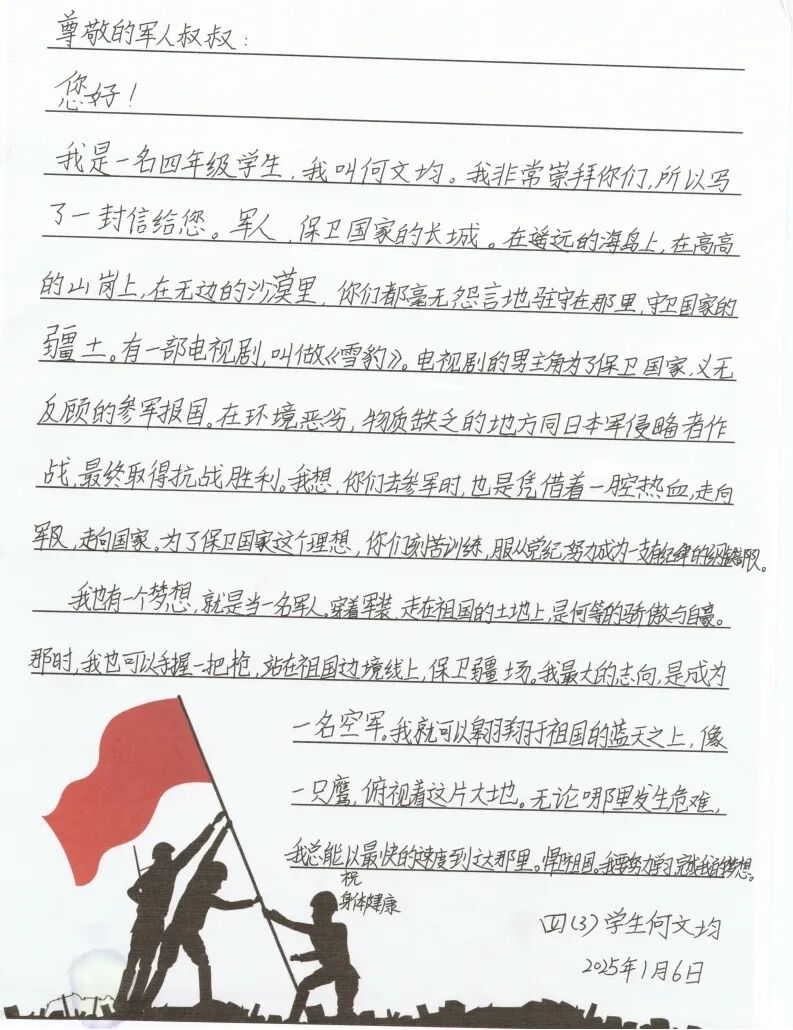 尊敬的军人叔叔:
您好!
我是一名四年级学生,我叫何文均。我非常崇拜你们,所以写
了一封信给您。军人,保卫国家的长城。在遥远的海岛上,在高高
的山岗上,在无边的沙漠里,你们都毫无怨言地驻守在那里,守卫国家的
疆土。有一部电视剧,叫做《雪豹》。电视剧的男主角为了保卫国家,义无
反顾的参军报国。在环境恶劣,物质缺乏的地方同日本军侵略者作
战,最终取得抗战胜利。我想,你们去参军时,也是凭借着一腔热血,走向
军队,走向国家。为了保卫国家这个理想,你们刻苦训练,服从党纪,努力成为一支有纪律的部队。
我也有一个梦想,就是当一名军人。穿着军装,走在祖国的土地上,是何等的骄傲与自豪。
那时,我也可以手握一把枪,站在祖国边境线上,保卫疆场。我最大的志向,是成为
一名空军。我就可以翱翔于祖国的蓝天之上,像
一只鹰,俯视着这片大地。无论哪里发生危难,
我总能以最快的速度到达那里。捍卫祖国。我要努力学习,完成我的梦想。
祝
身体健康
四(3)学生何文均
2025年1月6日